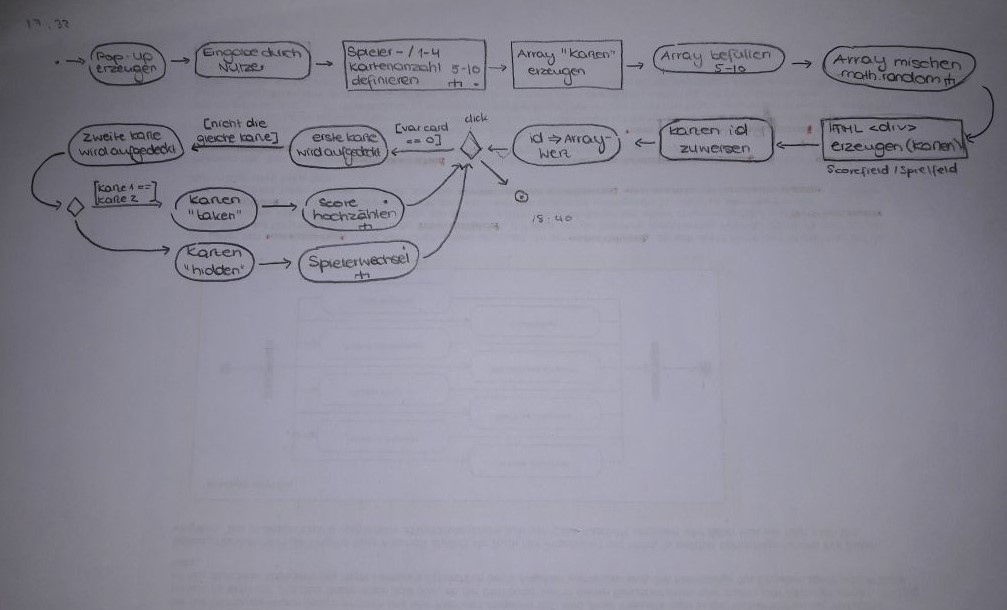 17:32
Pop-up
erzeugen
Eingabe durch
Nutzer
Spieler- / 1-4
Kartenanzahl 5-10
definieren
Array "karten"
erzeugen
Array befüllen
5-10
Array mischen
math.random
HTML <div>
erzeugen (karten)
Scorefield / Spielfeld
karten id
zuweisen
id ⇒ Array-
wert
click
[var card
== 0]
erste karte
wird aufgedeckt
[nicht die
gleiche karte]
zweite karte
wird aufgedeckt
[karte 1 ==
karte 2]
karten
"taken"
score
hochzählen
karten
"hidden"
Spielerwechsel
18:40